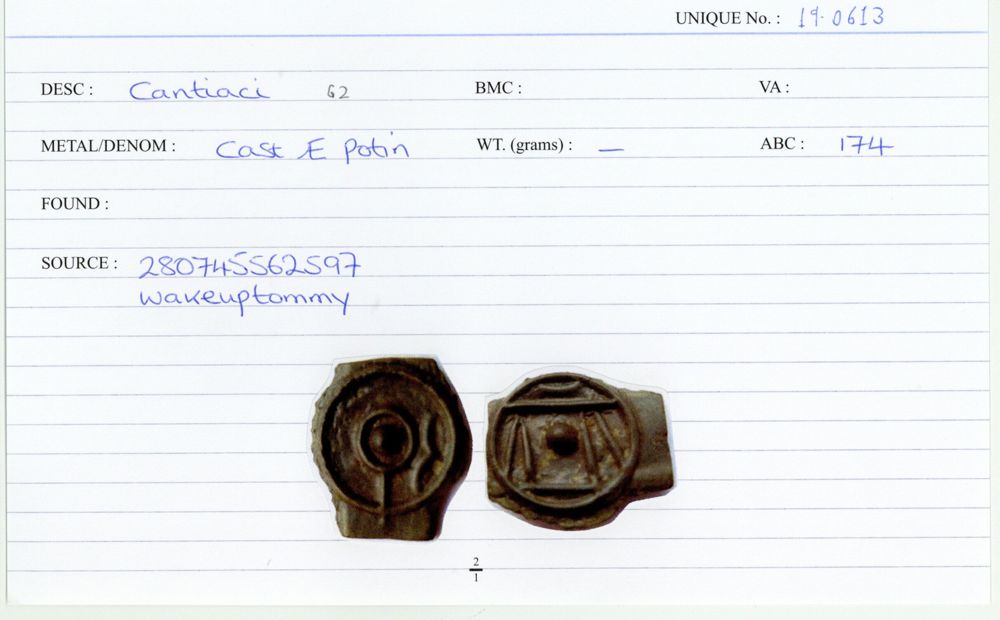 UNIQUE No. : 19.0613
DESC : Cantiaci 62 BMC : VA :
METAL/DENOM : Cast Æ Potin WT. (grams) : — ABC : 174
FOUND :
SOURCE : 280745562597
wakeuptommy
2
1